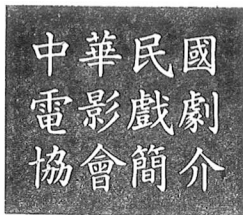 中華民國
電影戲劇
協會簡介